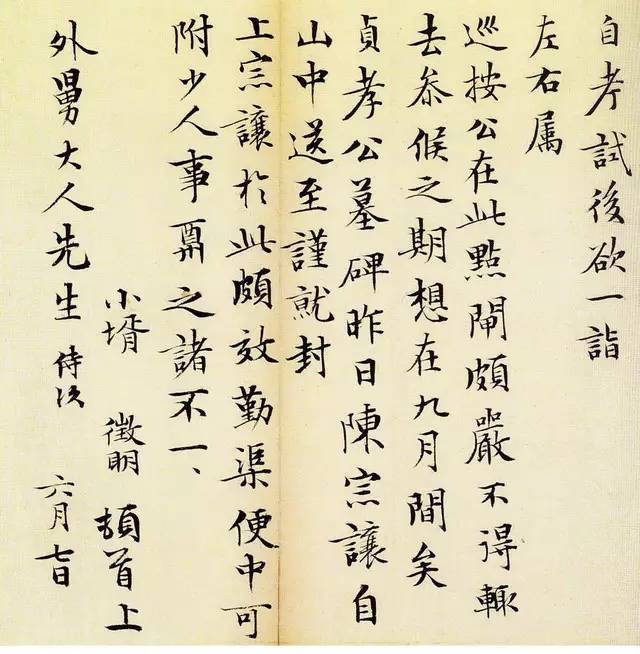 自考試後欲一詣
左右属
巡按公在此點閘頗嚴不得輙
去叅候之期想在九月間矣
貞孝公墓碑昨日陳宗讓自
山中送至謹就封
上宗讓於此頗效勤渠便中可
附少人事之諸不一、
小壻 徵明 頓首上
外舅大人先生 侍次 六月七日